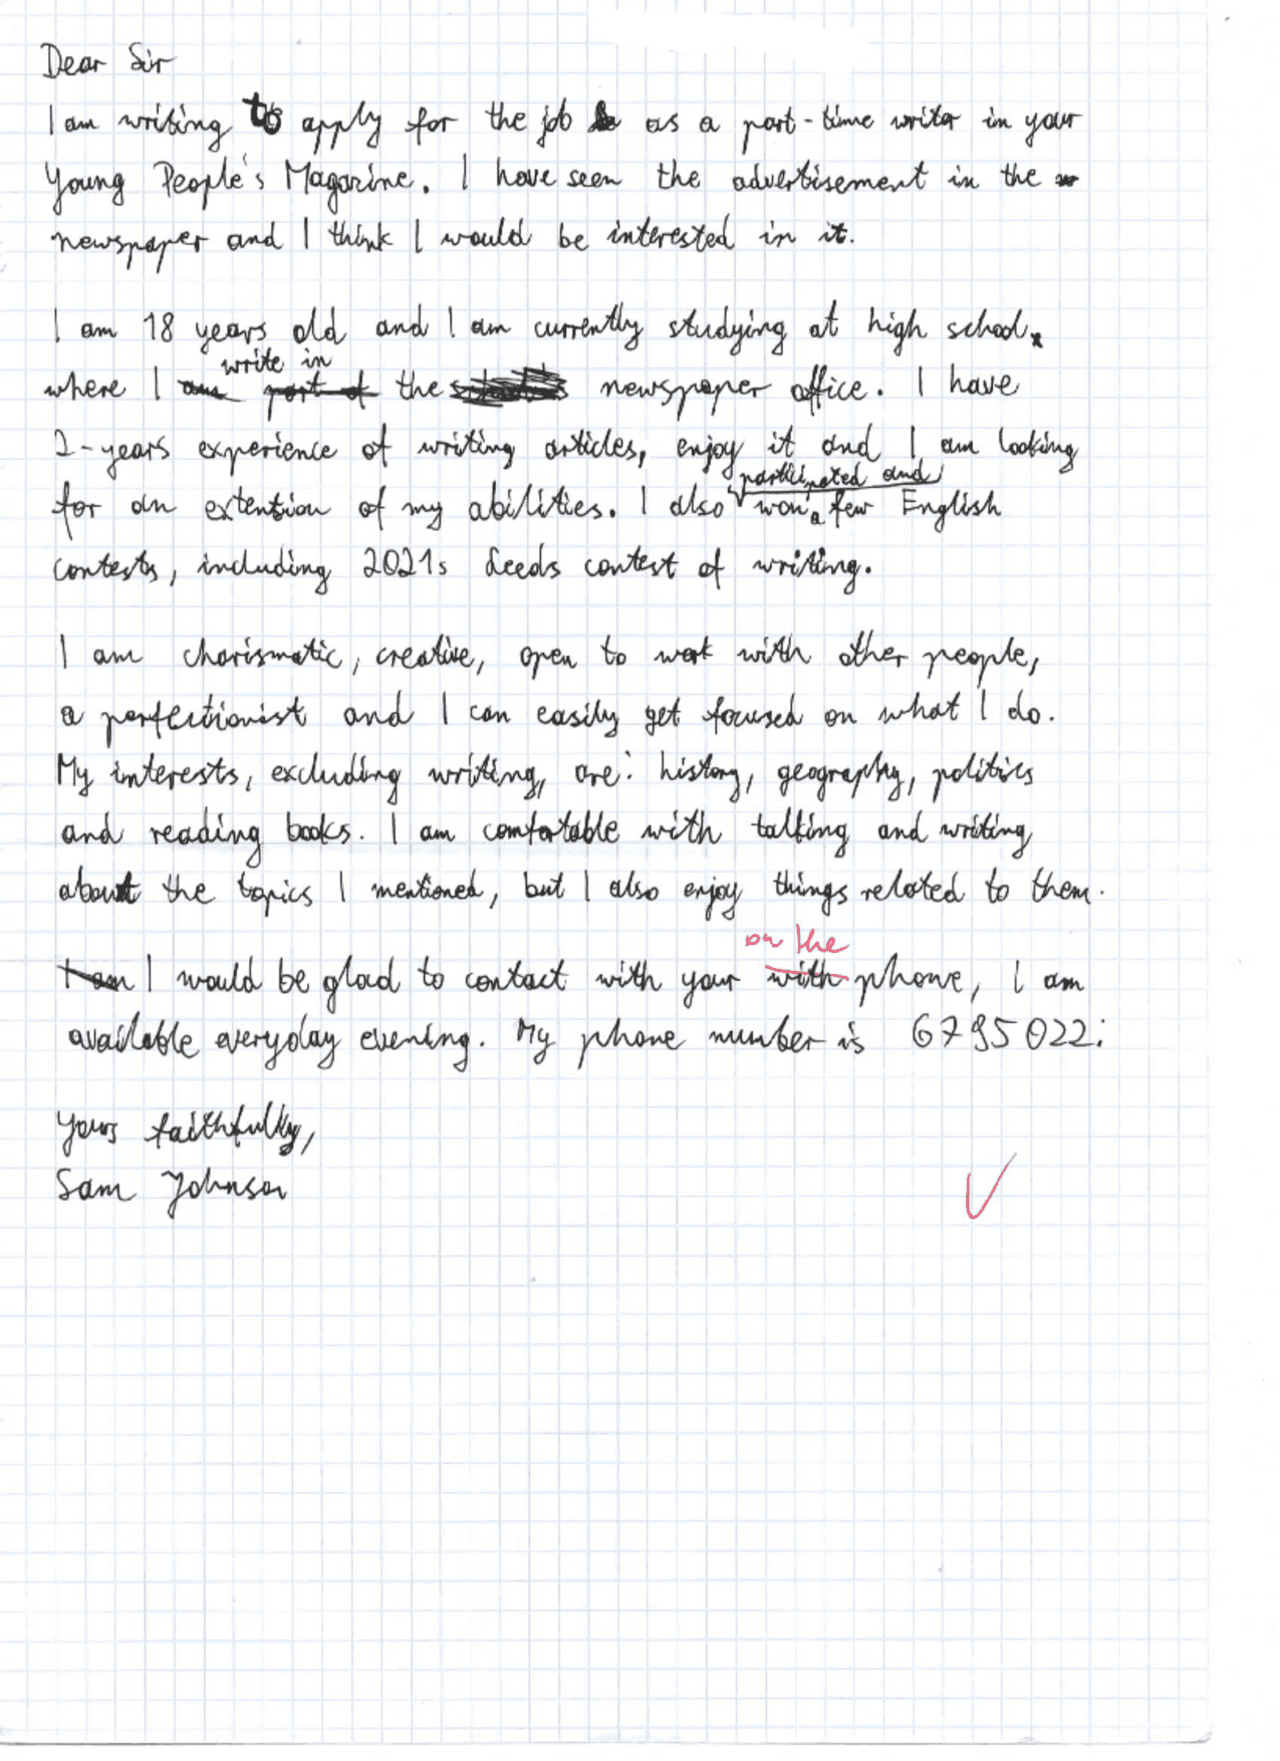 Dear Sir
I am writing to apply for the job as a part-time writer in your
Young People's Magazine. I have seen the advertisement in the
newspaper and I think I would be interested in it.
I am 18 years old and I am currently studying at high school,
write in
where I am part of the newspaper office. I have
2-years experience of writing articles, enjoy it and I am looking
participated and
for an extention of my abilities. I also won a few English
contests, including 2021s Leeds contest of writing.
I am charismatic, creative, open to work with other people,
a perfectionist and I can easily get focused on what I do.
My interests, excluding writing, are: history, geography, politics
and reading books. I am comfortable with talking and writing
about the topics I mentioned, but I also enjoy things related to them.
on the
I am I would be glad to contact with your with phone, I am
available everyday evening. My phone number is 6795022.
Yours faithfully,
Sam Johnson